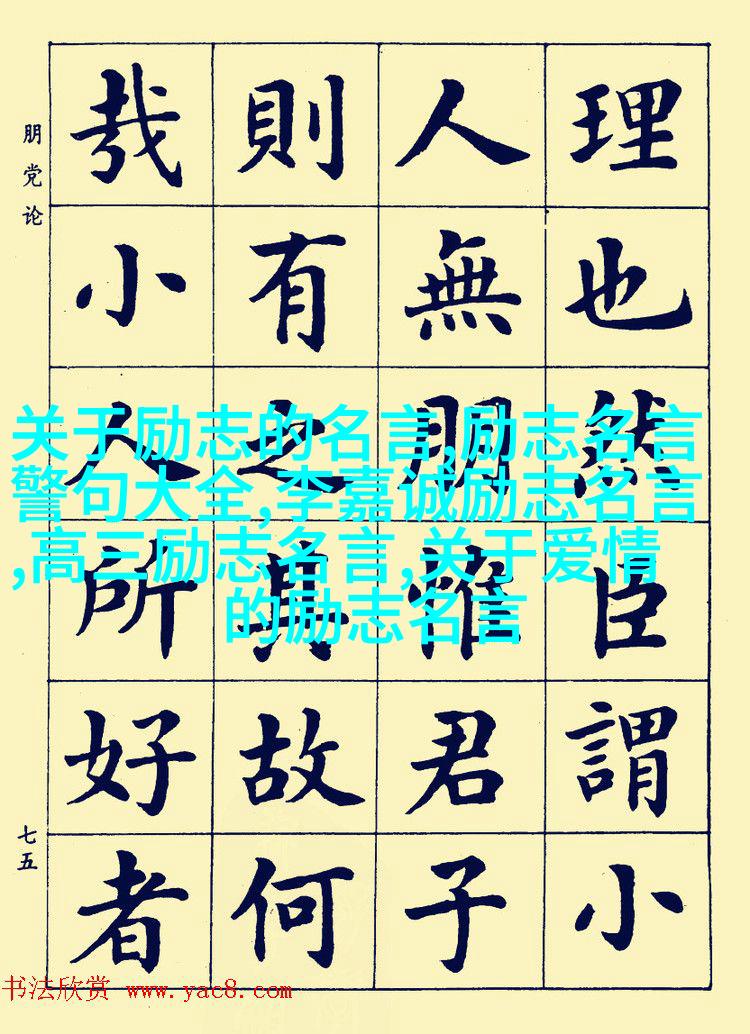 理也然臣謂小
人無朋惟君子
則有之其故何
哉小人所好者
朋党论
七五
关于励志的名言,励志名言
警句大全,李嘉诚励志名言
,高三励志名言,关于爱情
的励志名言
书法欣赏 www.yac8.com